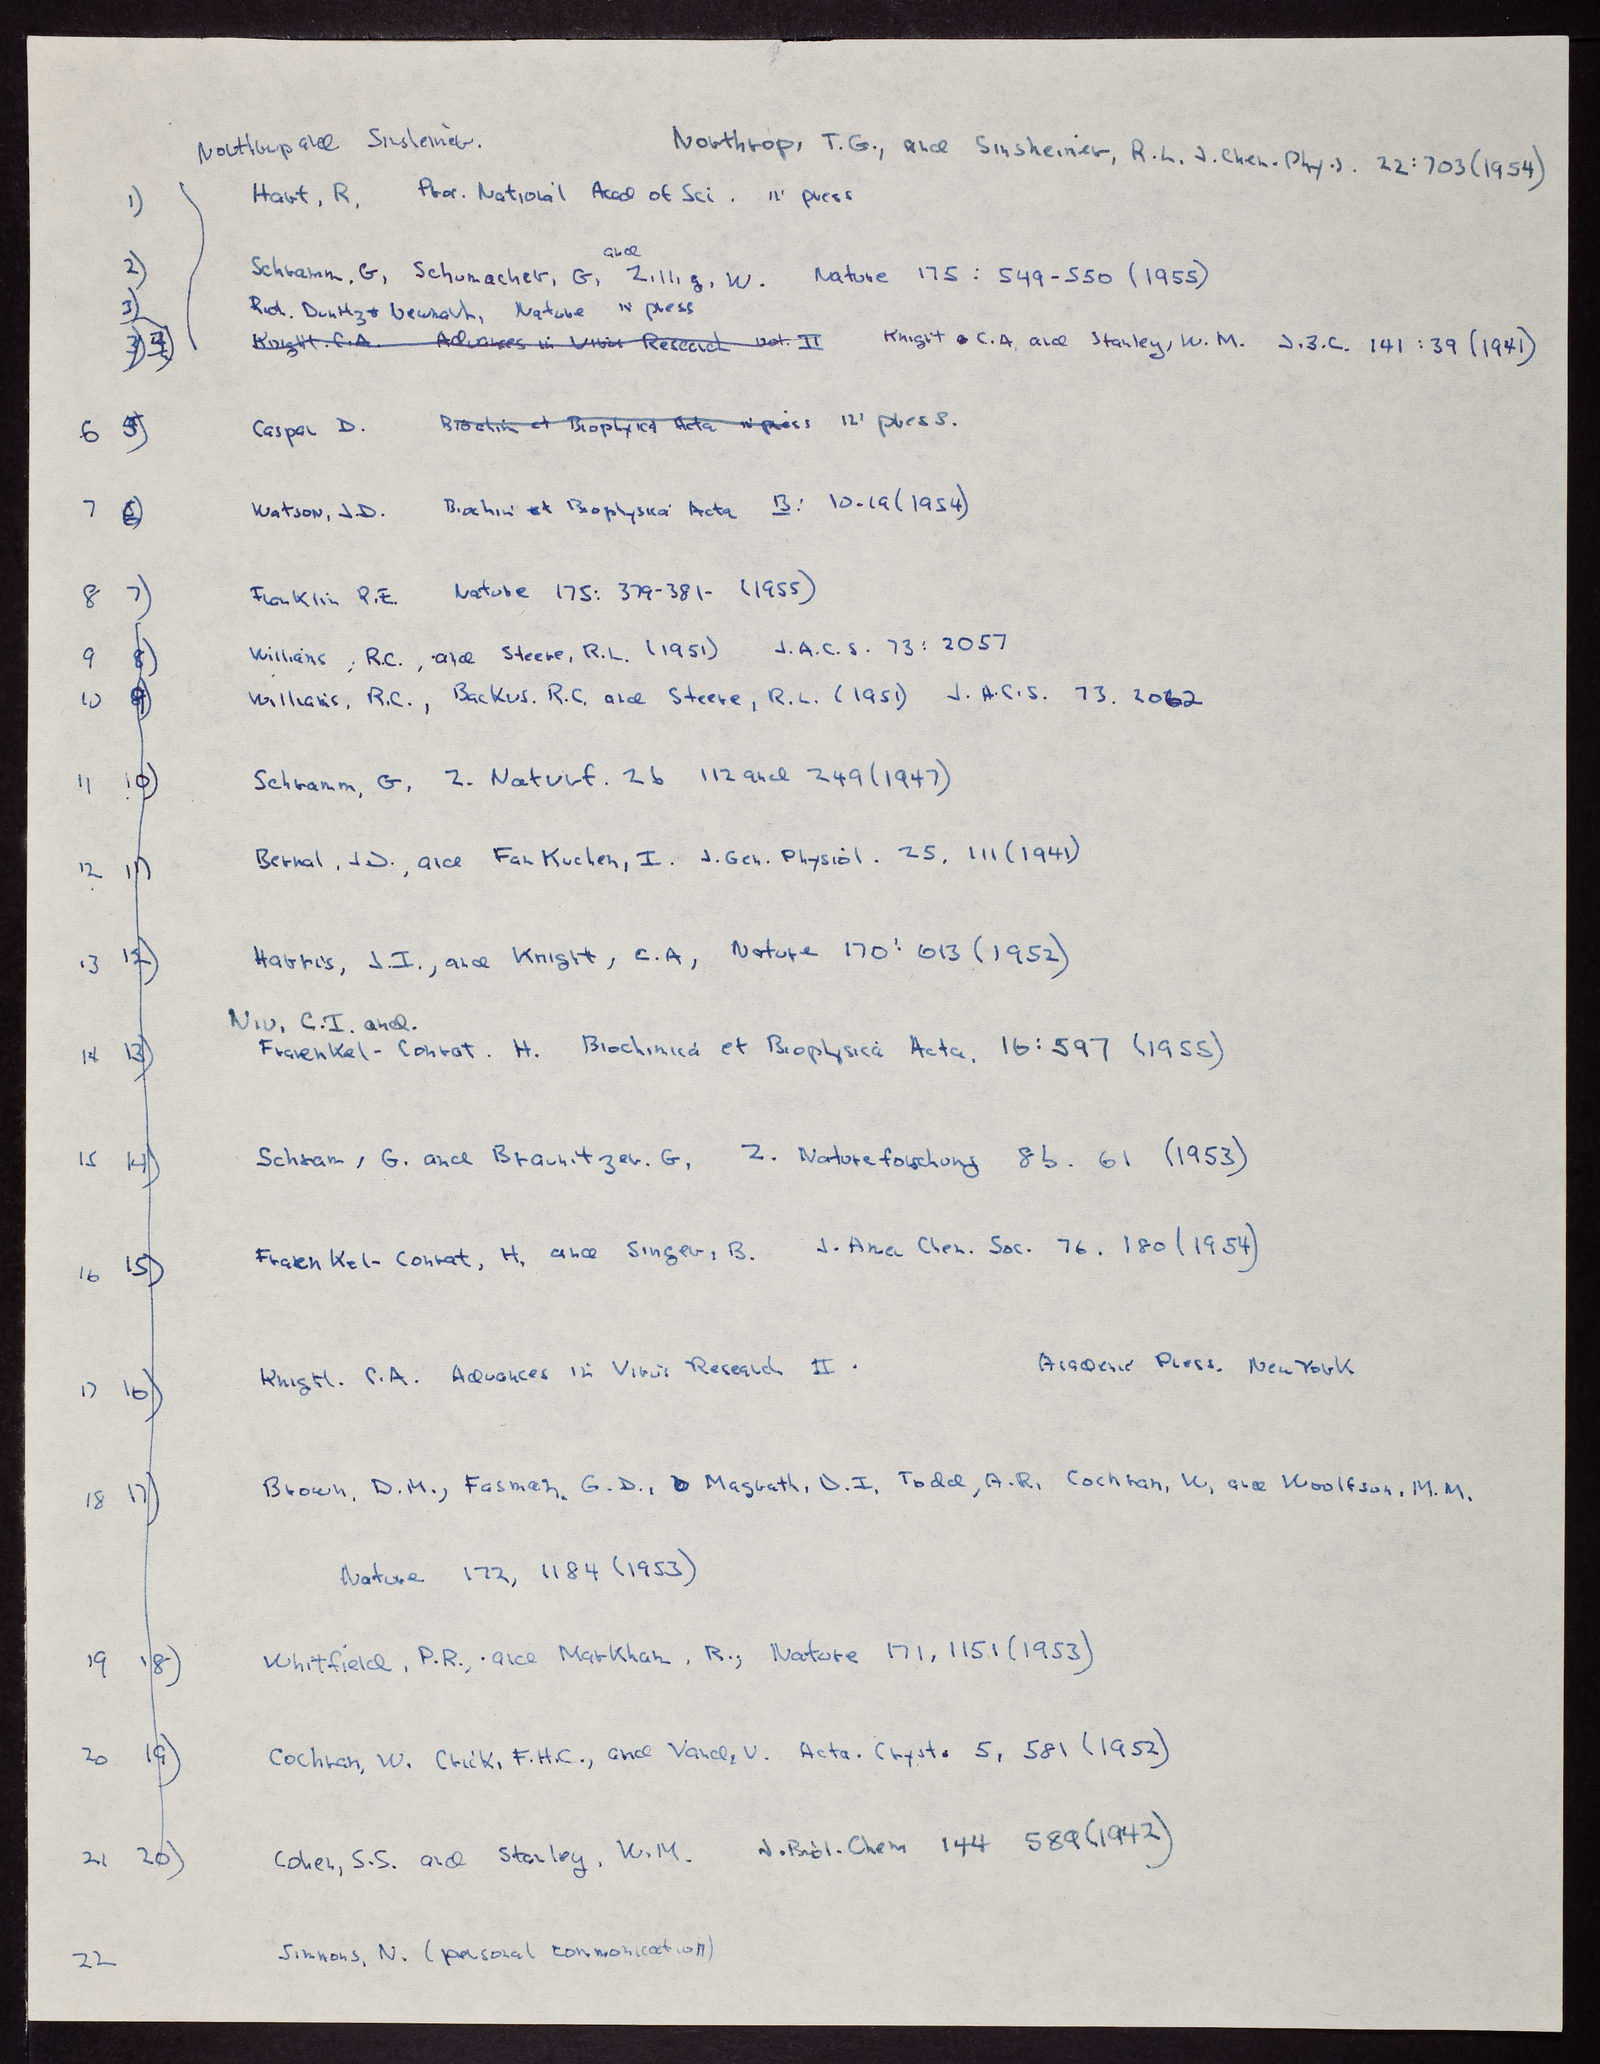 Northrup and Sinsheimer. Northrop, T.G., and Sinsheimer, R.L. J. Chem. Phys. 22:703 (1954)
1) Hart, R, Proc. National Acad of Sci. in press
2) Schramm, G, Schumacher, G, and Zillig, W. Nature 175: 549-550 (1955)
3) Rich, Dunitz + Newmark, Nature in press
4) Knight. C.A. Advances in Virus Research vol. II Knight C.A. and Stanley, W.M. J.B.C. 141:39 (1941)
6 5) Caspar D. Biochim et Biophysica Acta in press in press.
7 6) Watson, J.D. Biochim et Biophysica Acta 13: 10-19 (1954)
8 7) Franklin R.E. Nature 175: 379-381- (1955)
9 8) Williams, R.C., and Steere, R.L. (1951) J.A.C.S. 73: 2057
10 9) Williams, R.C., Backus. R.C. and Steere, R.L. (1951) J.A.C.S. 73. 2062
11 10) Schramm, G, Z. Naturf. 2b 112 and 249 (1947)
12 11) Bernal, J.D., and FanKuchen, I. J. Gen. Physiol. 25, 111 (1941)
13 12) Harris, J.I., and Knight, C.A, Nature 170: 613 (1952)
Niu, C.I. and.
14 13) Fraenkel-Conrat. H. Biochimica et Biophysica Acta, 16:597 (1955)
15 14) Schram, G. and Braunitzer. G, Z. Natureforschung 8b. 61 (1953)
16 15) Fraenkel-Conrat, H, and Singer, B. J. Am Chem. Soc. 76. 180 (1954)
17 16) Knight. C.A. Advances in Virus Research II. Academic Press. New York
18 17) Brown, D.M., Fasman, G.D., Magrath, D.I, Todd, A.R, Cochran, W, and Woolfson, M.M.
Nature 172, 1184 (1953)
19 18) Whitfield, P.R., and Markham, R., Nature 171, 1151 (1953)
20 19) Cochran, W. Crick, F.H.C., and Vand, V. Acta. Cryst. 5, 581 (1952)
21 20) Cohen, S.S. and Stanley, W.M. J. Biol. Chem 144 589 (1942)
22 Simmons, N. (personal communication)